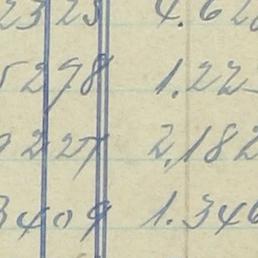 2325 4.620
5298 1.223
9227 2,182
3409 1.346